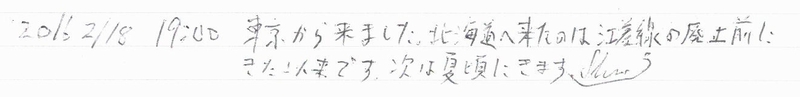 2/18 19:00 東京から来ました。北海道へ来たのは江差線の廃止前に
きた以来です。次は夏頃にきます。